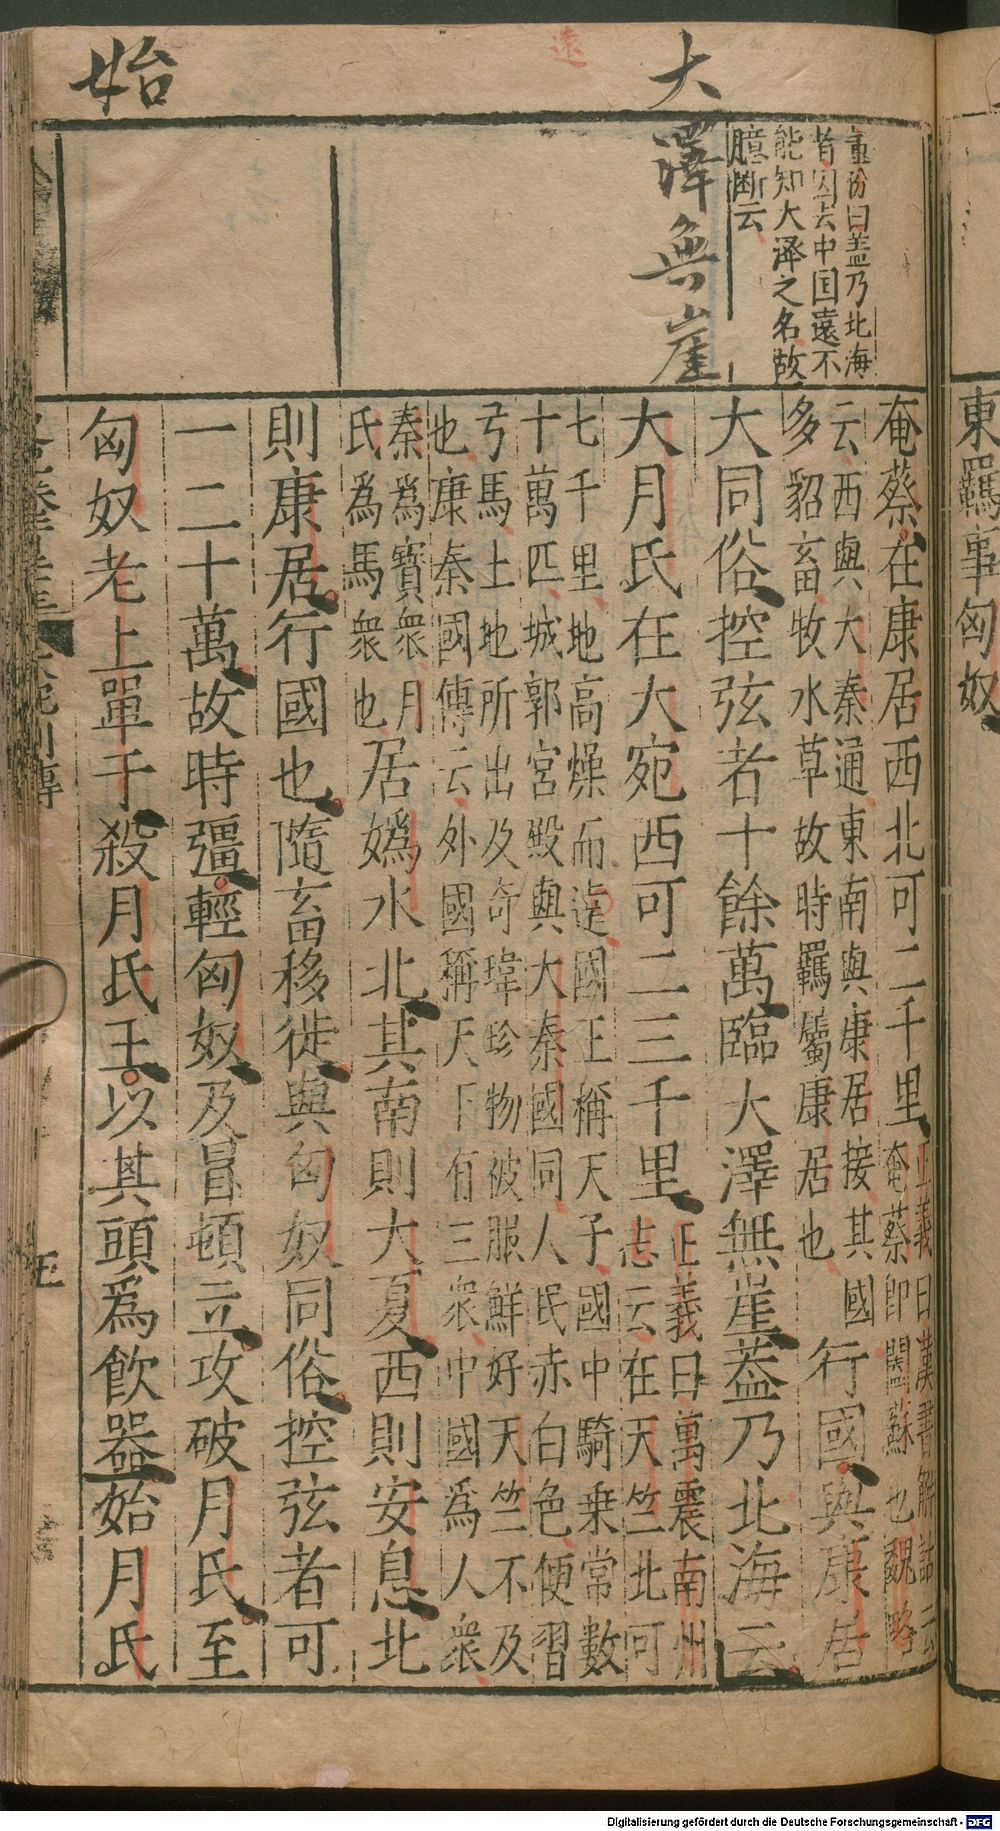 東羈事匈奴
遠
大澤無崖
始
董份曰蓋乃北海
者因云中囯遠不
能知大澤之名故
臆断云
奄蔡在康居西北可二千里正義曰漢書解詁云
奄蔡即闔蘇也魏略
云西與大秦通東南與康居接其國
多貂畜牧水草故時羈屬康居也行國與康居
大同俗控弦者十餘萬臨大澤無崖蓋乃北海云
大月氏在大宛西可二三千里正義曰萬震南州
志云在天竺北可
七千里地高燥而遠國王稱天子國中騎乗常數
十萬匹城郭宮殿與大秦國同人民赤白色便習
弓馬土地所出及奇瑋珍物被服鮮好天竺不及
也康秦國傳云外國稱天下有三衆中國為人衆
秦爲寳衆月
氏爲馬衆也居嬀水北其南則大夏西則安息北
則康居行國也隨畜移徙與匈奴同俗控弦者可
一二十萬故時彊輕匈奴及冒頓立攻破月氏至
匈奴老上單于殺月氏王以其頭爲飲器始月氏
列傳
五
Digitalisierung gefördert durch die Deutsche Forschungsgemeinschaft - DFG